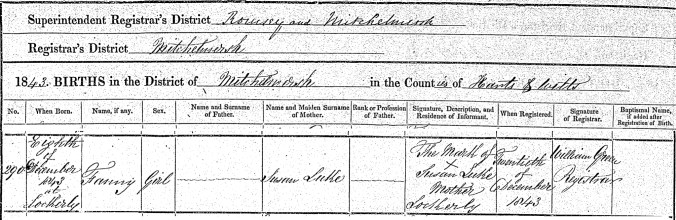 Superintendent Registrar's District Romsey and Mitchelmersh
Registrar's District Mitchelmersh
1843. BIRTHS in the District of Mitchelmersh in the Counties of Hants & Wilts
No. When Born. Name, if any. Sex. Name and Surname of Father. Name and Maiden Surname of Mother. Rank or Profession of Father. Signature, Description, and Residence of Informant. When Registered. Signature of Registrar. Baptismal Name, if added after Registration of Birth.
290 Eighth of December 1843 at Lockerly Fanny Girl Susan Luke The Mark of + Susan Luke Mother Lockerly Twentieth of December 1843 William Registrar